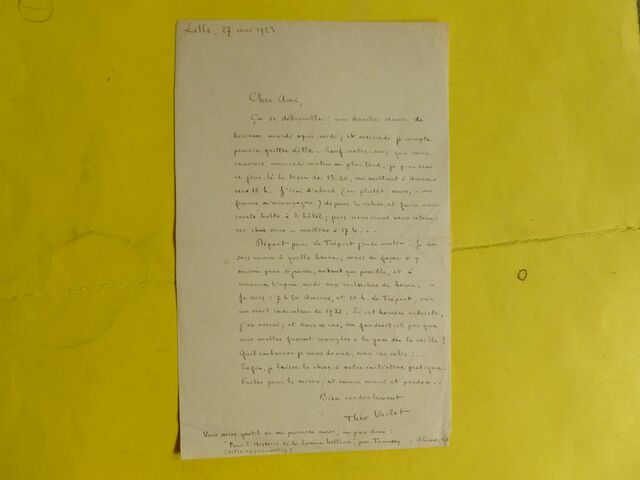 Lille, 27 mai 1923
Cher Ami,
Ça se débrouille : une dernière séance de
business mardi après-midi ; et mercredi je compte
pouvoir quitter Lille. Sauf contre-avis que vous
mercredi matin au plus tard, je prendrai
ce jour-là le train de 13.40, me mettant à Amiens
vers 16 h. J'irai d'abord (ou plutôt : nous, – ma
femme m'accompagne) déposer la valise, et faire une
courte halte à l'hôtel ; puis nous irons vous retrou-
ver chez vous – mettons à 17 h...
Départ pour Le Tréport jeudi matin. Je ne
sais encore à quelle heure, mais de façon à y
arriver pour déjeuner, autant que possible, et à
consacrer l'après-midi aux recherches de home. –
Je vois : 7 h 30 Amiens, et 10 h. Le Tréport, sur
un vieil indicateur de 1921. Si cet horaire subsiste,
et dans ce cas, ne faudrait-il pas que
mes malles fussent à la gare dès la veille ?
Quel embarras je vous donne, avec ces colis !...
Enfin, je laisse la chose à votre initiative pratique.
Faites pour le mieux, et encore merci et pardon...
Bien cordialement
Théo Varlet
Vous seriez gentil de me procurer aussi, au prix dino :
"Pour l'Histoire de la Science hellène", par Tannery – Alcan, éd
(titre approximatif)